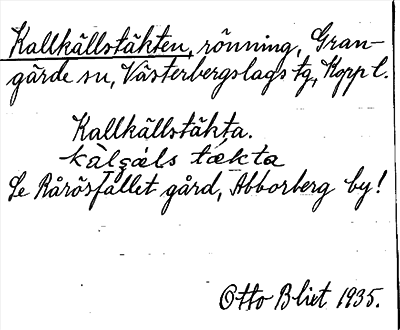 Kallkällstäkten, rönning, Gran-
gärde sn, Västerbergslags tg, Kopp l.
Kallkällstäkta.
kàlʂæls tækta
Se Rårösfallet gård, Abborberg by!
Otto Blixt 1935.